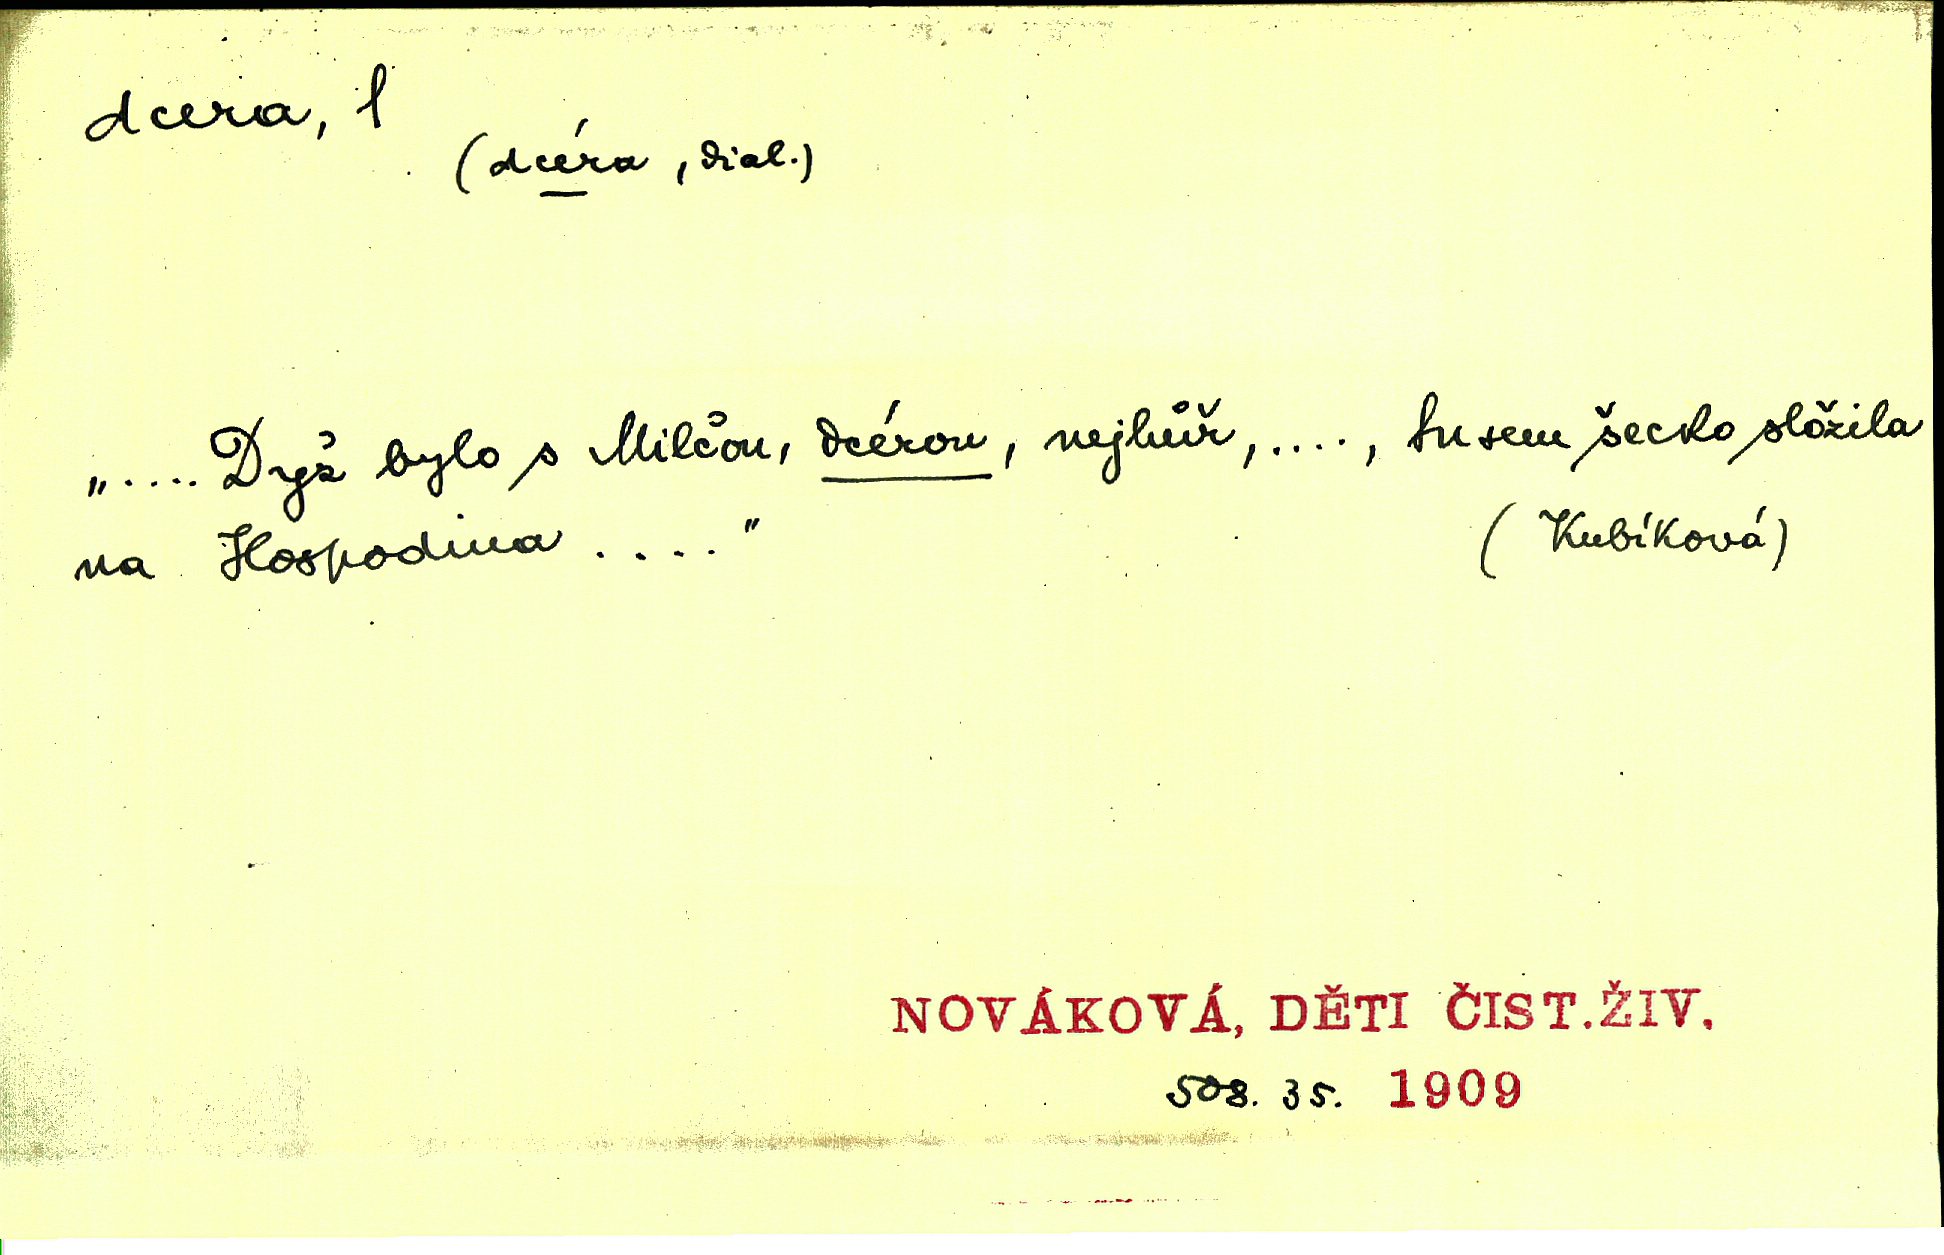 dcera, f
(dcéra, dial.)
„.... Dyž bylo s Milčou, dcérou, nejhůř, ...., tu sem šecko složila
na Hospodina ...." (Kubíková)
NOVÁKOVÁ, DĚTI ČIST.ŽIV.
508. 35. 1909